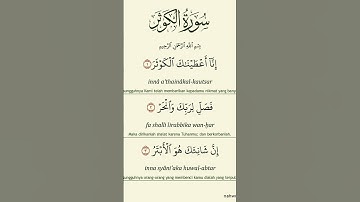 سُورَةُ الْكَوْثَرِ
بِسْمِ اللَّهِ الرَّحْمَٰنِ الرَّحِيمِ
إِنَّا أَعْطَيْنَاكَ الْكَوْثَرَ ١
innā a'ṭhainākal-kautsar
sungguhnya Kami telah memberikan kepadamu nikmat yang bany
فَصَلِّ لِرَبِّكَ وَانْحَرْ ٢
fa shalli lirabbika wan-ḥar
Maka dirikanlah shalat karena Tuhanmu; dan berkorbanlah.
إِنَّ شَانِئَكَ هُوَ الْأَبْتَرُ ٣
inna syāni'aka huwal-abtar
sungguhnya orang-orang yang membenci kamu dialah yang terput